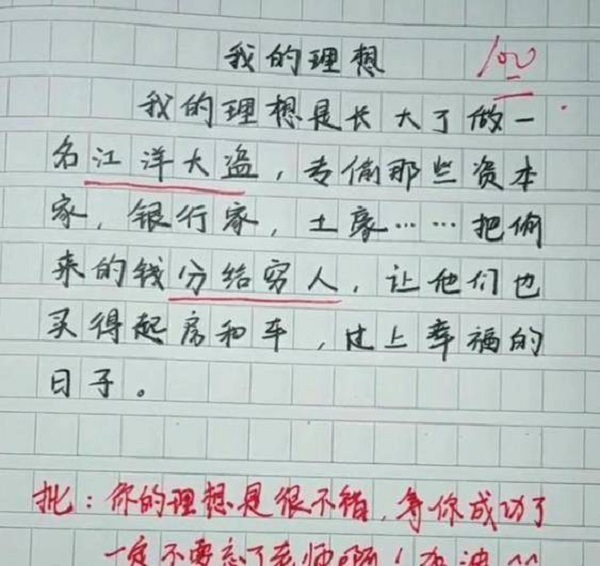 我的理想
100
我的理想是长大了做一
名江洋大盗，专偷那些资本
家，银行家，土豪……把偷
来的钱分给穷人，让他们也
买得起房和车，过上幸福的
日子。
批：你的理想是很不错，等你成功了
一定不要忘了老师啊！加油^^